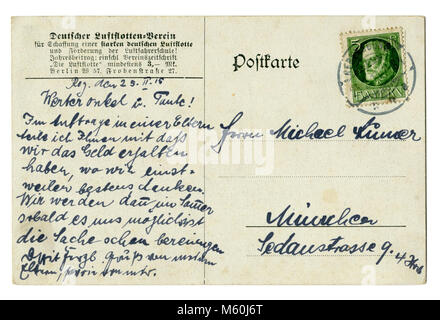 Deutscher Luftflotten-Verein
für Schaffung einer starken deutschen Luftflotte
und Förderung der Luftfahrerschule!
Jahresbeitrag: einschl Vereinszeitschrift
"Die Luftflotte" mindestens 3,— Mk.
Berlin W 57, Frobenstraße 27.
Postkarte
BAYERN
den 23. II. 15
Werter onkel u. Tante!
Im Auftrage meiner Eltern
teile ich Ihnen mit daß
wir das Geld erhalten
haben, wo wir einst-
weilen bestens danken.
Wir werden dann im
sobald es uns möglich ist
die Sache schon bereinigen
Mit frdl. Grüß von unsern
Eltern
Herrn Michael
München
Sedanstrasse 9. 4
alamy
Image ID: M60J6T
www.alamy.com